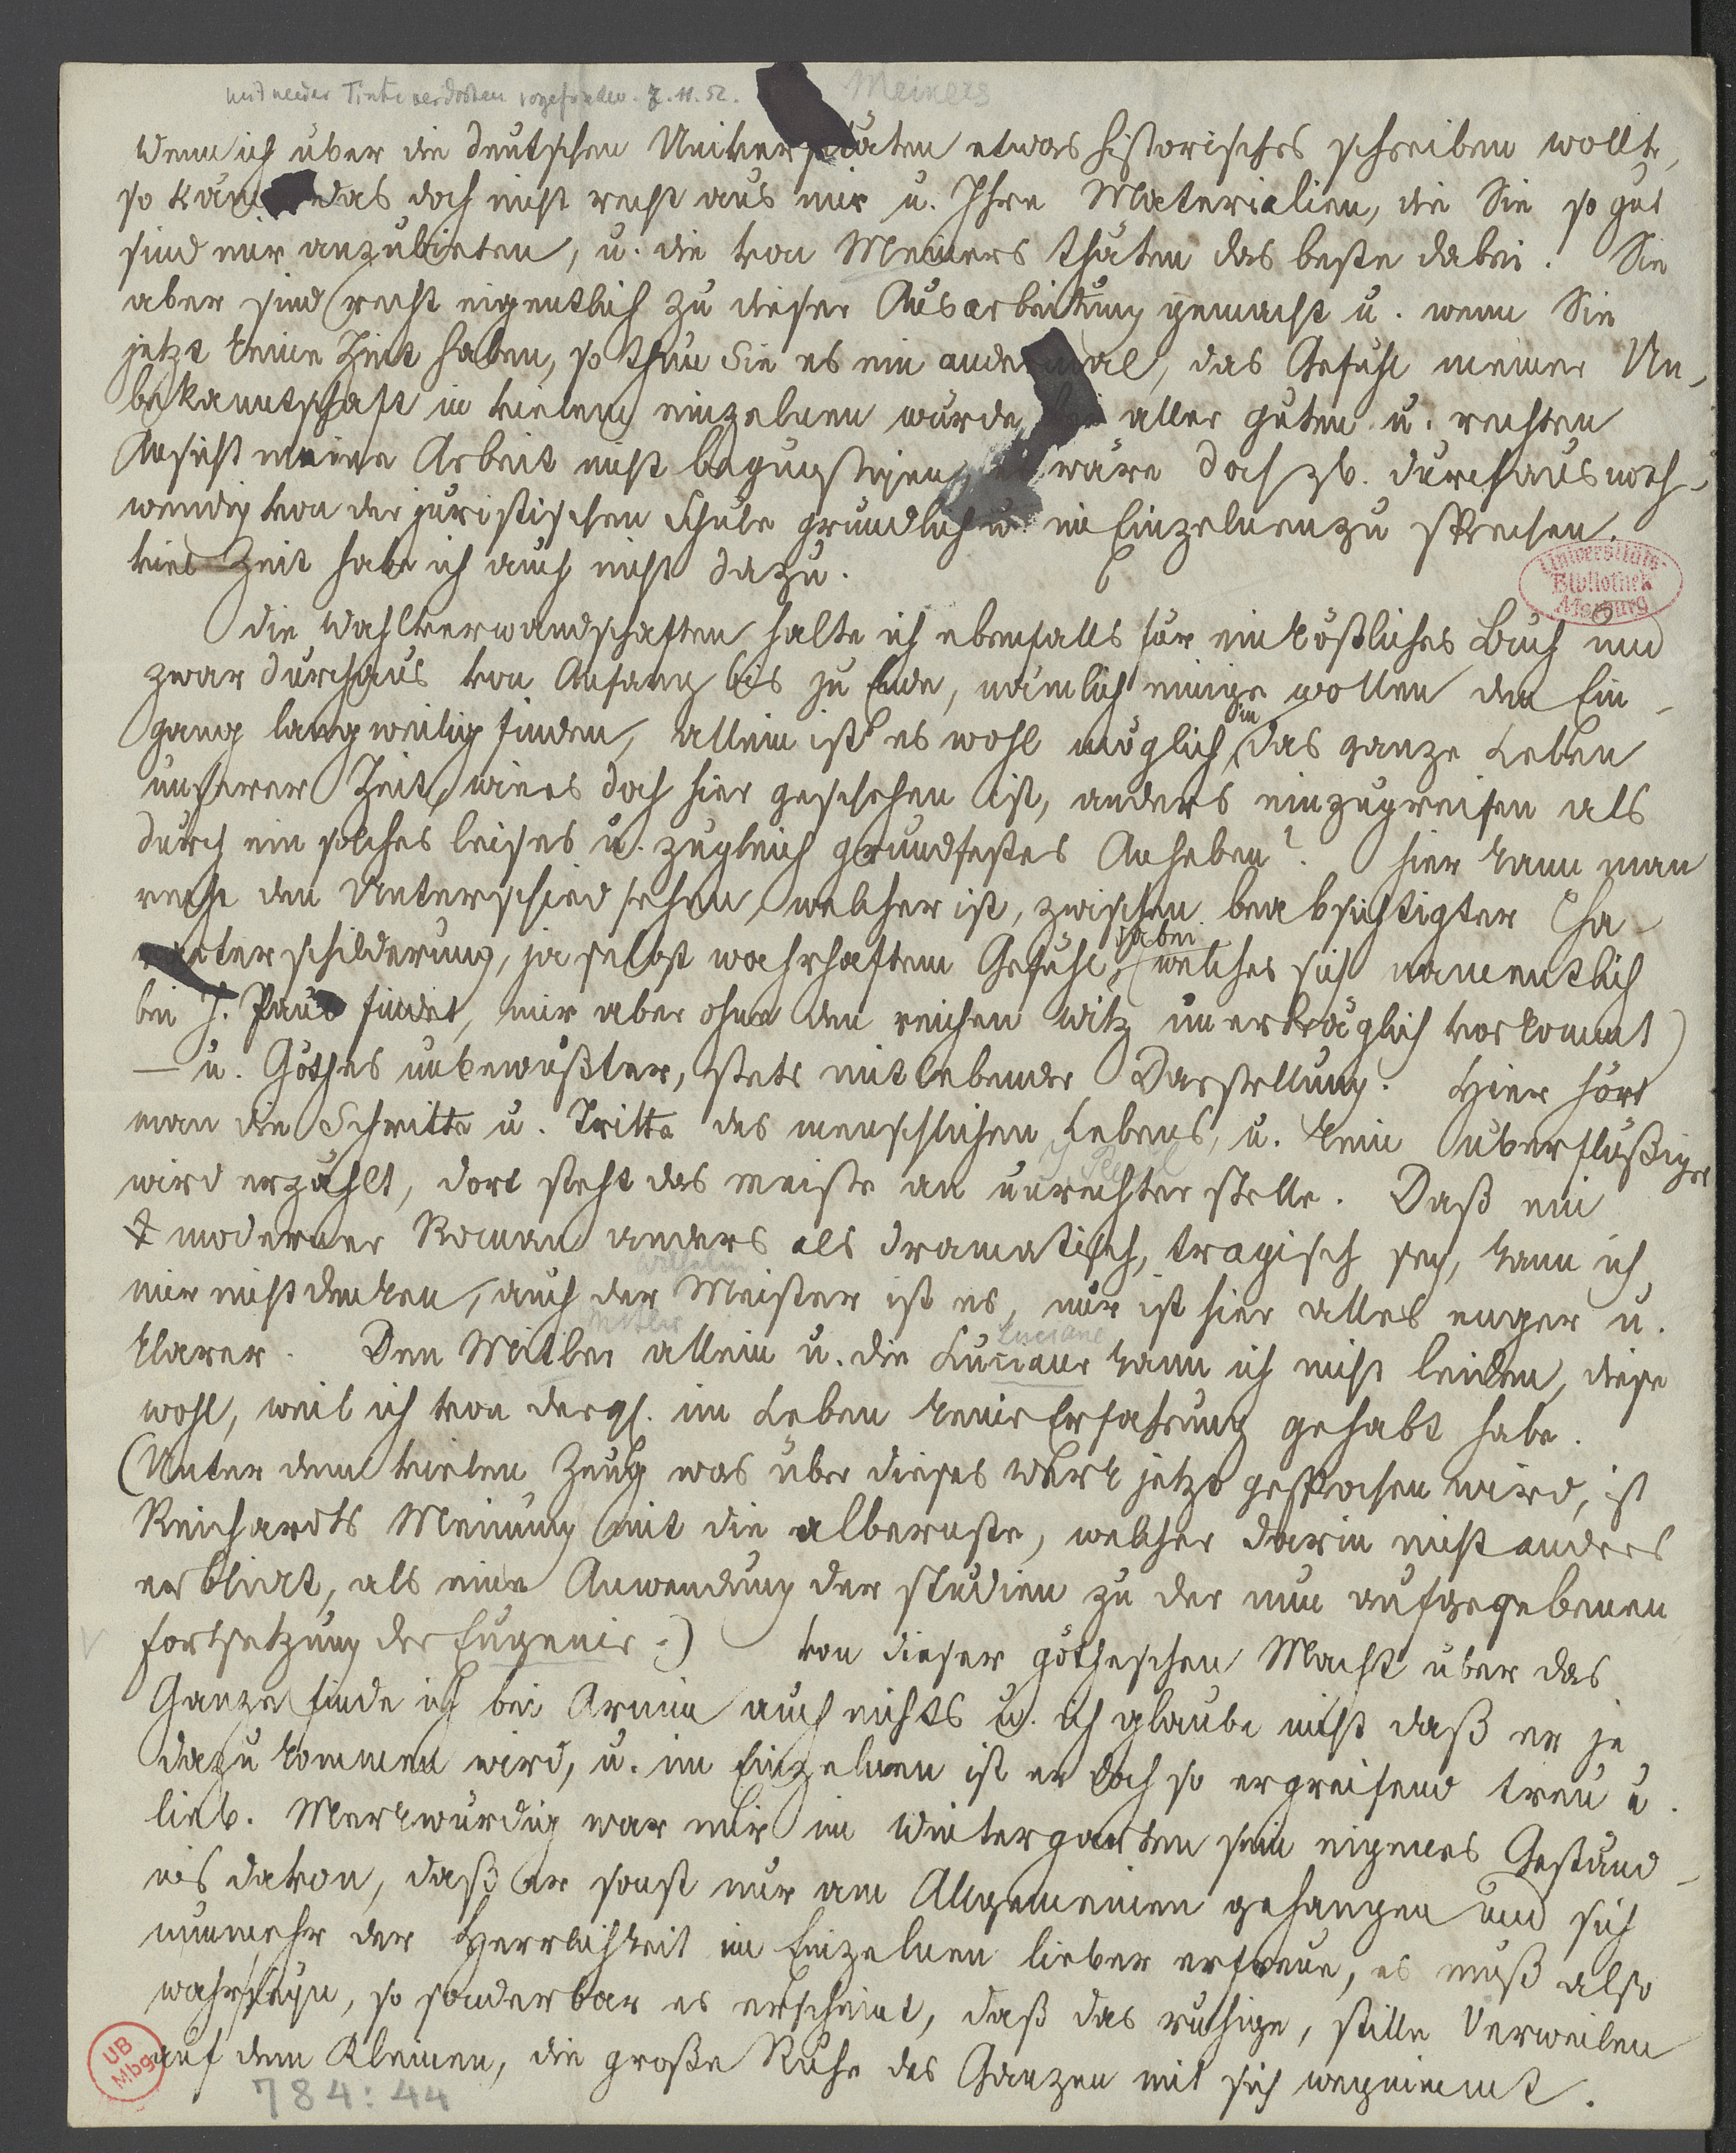 mit neuer Tinte verdorben vorgefunden. 7.11.52.
Meiners
Wenn ich über die deutschen Universitäten etwas historisches schreiben wollte,
so käme das doch nicht recht aus mir u. Ihre Materialien, die Sie so gut
sind mir anzubieten, u. die von Meiners thäten das beste dabei. Sie
aber sind recht eigentlich zu dieser Ausarbeitung gemacht u. wenn Sie
jetzt keine Zeit haben, so thun Sie es ein andermal, das Gefühl meiner Un-
bekanntschaft in vielem einzelnen würde, bei aller guten u. rechten
Absicht meine Arbeit nicht begünstigen, es wäre doch zb. durchaus noth-
wendig von der juristischen Schule gründlich u. im Einzelnen zu sprechen.
viel Zeit habe ich auch nicht dazu.
Universitäts-
Bibliothek
Marburg
Die Wahlverwandschaften halte ich ebenfalls für ein köstliches Buch und
zwar durchaus von Anfang bis zu Ende, nämlich einige wollen den Ein-
gang langweilig finden, allein ist es wohl möglich, in das ganze Leben
unserer Zeit, wie es doch hier geschehen ist, anders einzugreifen als
durch ein solches leises u. zugleich grundfestes Anheben? Hier kann man
recht den Unterschied sehen, welcher ist, zwischen beabsichtigter Cha-
racterschilderung, ja selbst wahrhaftem Gefühl dabei (welches sich namentlich
bei J. Paul findet, mir aber ohne den reichen Witz unerträglich vorkommt)
— u. Göthes unbewußter, stets mitlebender Darstellung. Hier hört
man die Schritte u. Tritte des menschlichen Lebens, u. kein überflüßiger
J Paul
wird erzählt, dort steht das meiste an unrechter Stelle. Daß ein
moderner Roman anders als dramatisch, tragisch sey, kann ich
Wilhelm
mir nicht denken, auch der Meister ist es, nur ist hier alles enger u.
Mittler
Luciane
klarer. Den Mitler allein u. die Luciane kann ich nicht leiden, diese
wohl, weil ich von dergl. im Leben keine Erfahrung gehabt habe.
(Unter dem vielen Zeug was über dieses Werk jetzo gesprochen wird, ist
Reichardts Meinung mit die albernste, welcher darin nicht anders
erblickt, als eine Anwendung der Studien zu der nun aufgegebenen
Fortsetzung der Eugenie.) Von dieser götheschen Macht über das
Ganze finde ich bei Arnim auch nichts u. ich glaube nicht daß er je
dazu kommen wird, u. im Einzelnen ist er doch so ergreifend treu u.
lieb. Merkwürdig war mir im Wintergarten sein eigenes Geständ-
nis davon, daß er sonst nur am Allgemeinen gehangen und sich
nunmehr der Herrlichkeit im Einzelnen lieber erfreue, es muß also
wahr seyn, so sonderbar es erscheint, daß das ruhige, stille Verweilen
auf dem Kleinen, die große Ruhe des Ganzen mit sich wegnimmt.
UB
Mbg
784:44